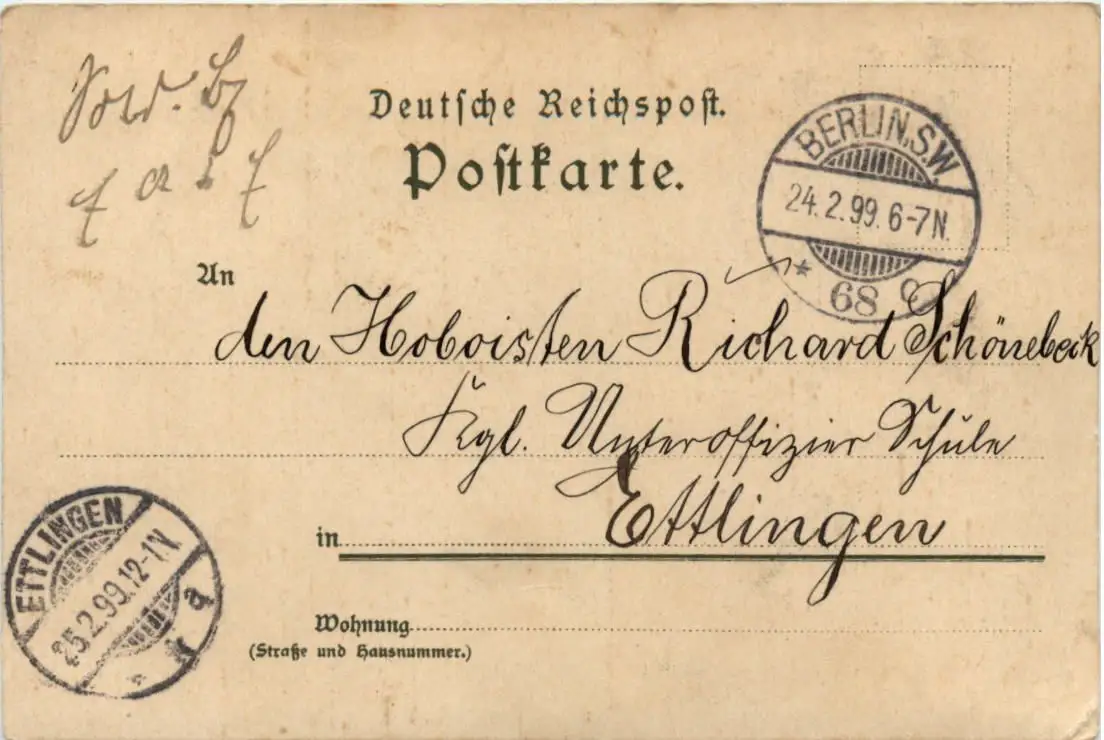 Deutsche Reichspost.
Postkarte.
BERLIN.S.W
24.2.99.6-7N.
* 68 c
An
den Hoboisten Richard Schönebeck
Kgl. Unteroffizier Schule
in Ettlingen
Wohnung
(Straße und Hausnummer.)
ETTLINGEN
25.2.99.12-1N